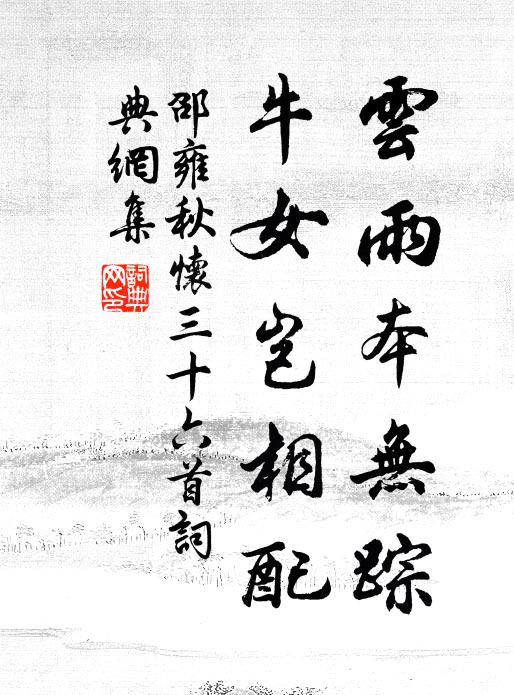 雲雨本無踪
牛女岂相配
邵雍秋懷三十六首詞
典網集
詞典
网印